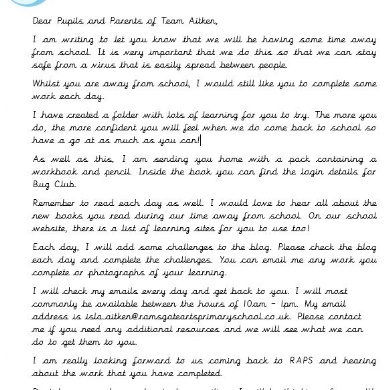 Dear Pupils and Parents of Team Aitken,
I am writing to let you know that we will be having some time away
from school. It is very important that we do this so that we can stay
safe from a virus that is easily spread between people.
Whilst you are away from school, I would still like you to complete some
work each day.
I have created a folder with lots of learning for you to try. The more you
do, the more confident you will feel when we do come back to school so
have a go at as much as you can!
As well as this, I am sending you home with a pack containing a
workbook and pencil. Inside the book you can find the login details for
Bug Club.
Remember to read each day as well. I would love to hear all about the
new books you read during our time away from school. On our school
website, there is a list of learning sites for you to use too!
Each day, I will add some challenges to the blog. Please check the blog
each day and complete the challenges. You can email me any work you
complete or photographs of your learning.
I will check my emails every day and get back to you. I will most
commonly be available between the hours of 10am - 1pm. My email
address is isla.aitken@ramsgateartsprimaryschool.co.uk. Please contact
me if you need any additional resources and we will see what we can
do to get them to you.
I am really looking forward to us coming back to RAPS and hearing
about the work that you have completed.